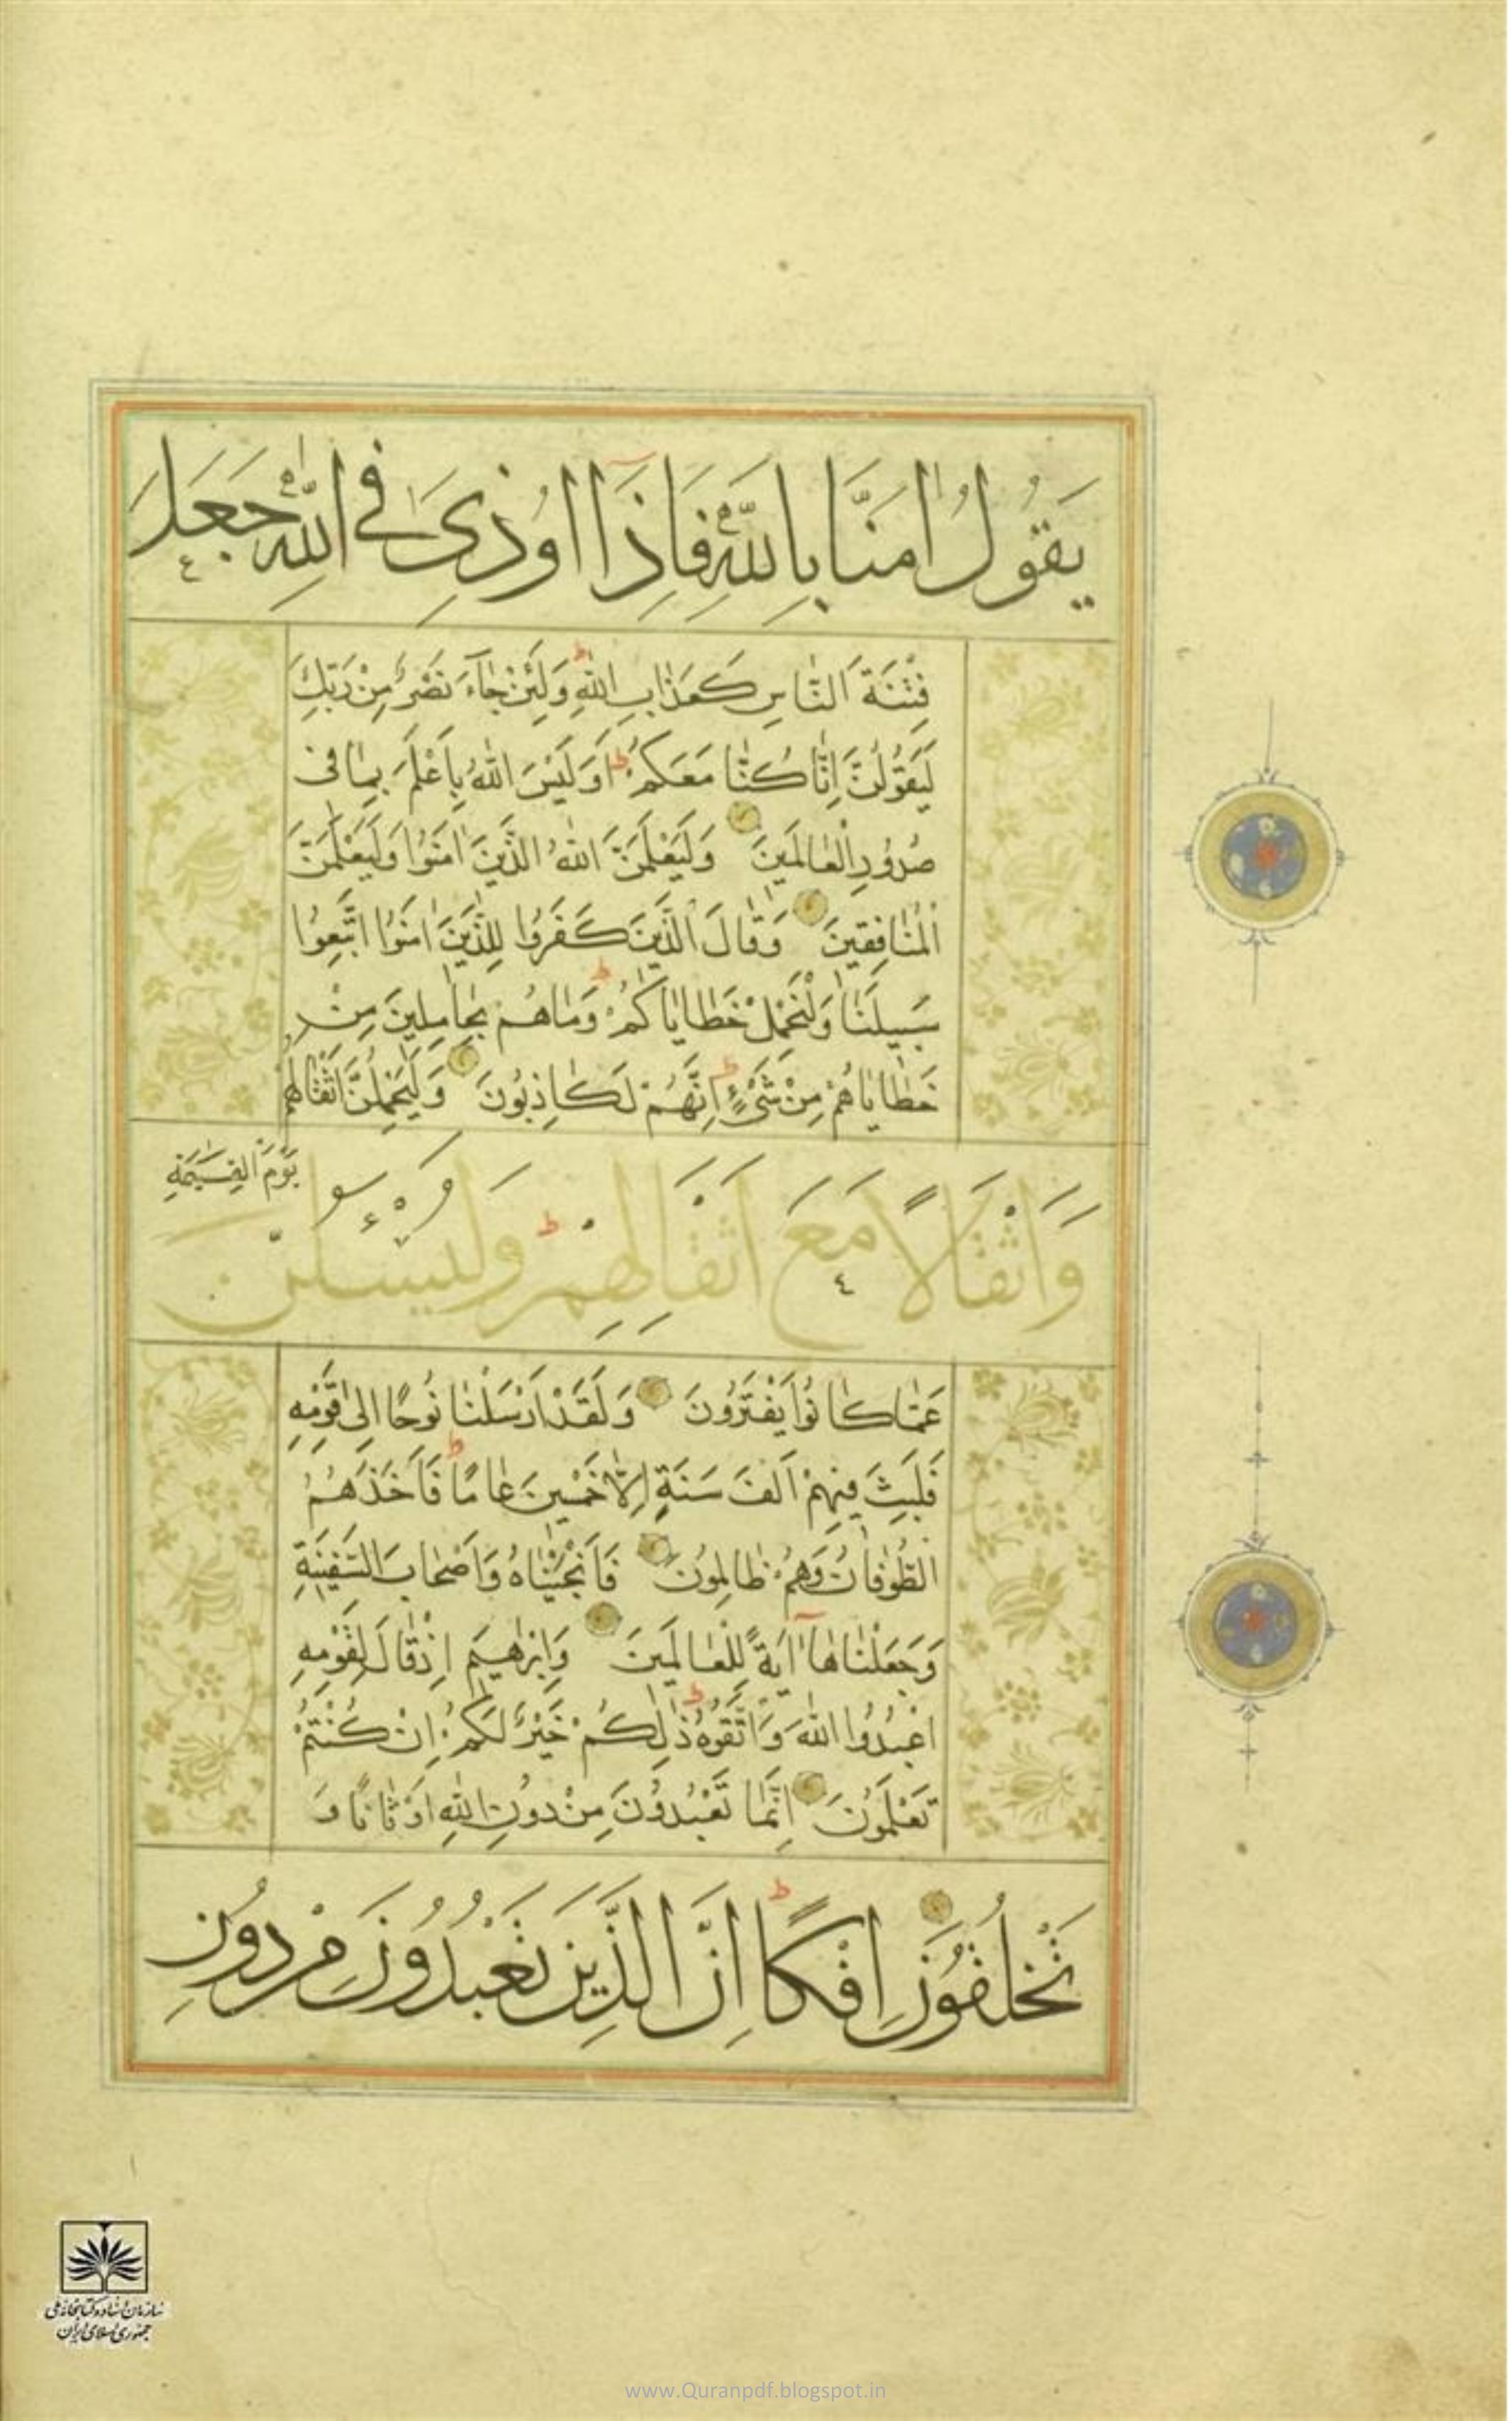 يَقُولُ اٰمَنَّا بِاللّٰهِ فَاِذَا اُوذِىَ فِى اللّٰهِ جَعَلَ
فِتْنَةَ النَّاسِ كَعَذَابِ اللّٰهِ ط وَلَئِنْ جَاۤءَ نَصْرٌ مِنْ رَبِّكَ
لَيَقُولُنَّ اِنَّا كُنَّا مَعَكُمْ ط اَوَلَيْسَ اللّٰهُ بِاَعْلَمَ بِمَا فى
صُدُورِ الْعَالَمينَ وَلَيَعْلَمَنَّ اللّٰهُ الَّذينَ اٰمَنُوا وَلَيَعْلَمَنَّ
الْمُنَافِقينَ وَقَالَ الَّذينَ كَفَرُوا لِلَّذينَ اٰمَنُوا اتَّبِعُوا
سَبيلَنَا وَلْنَحْمِلْ خَطَايَاكُمْ ط وَمَا هُمْ بِحَامِلينَ مِنْ
خَطَايَاهُمْ مِنْ شَىْءٍ ط اِنَّهُمْ لَكَاذِبُونَ وَلَيَحْمِلُنَّ اَثْقَالَهُمْ
وَاَثْقَالًا مَعَ اَثْقَالِهِمْ ط وَلَيُسْئَلُنَّ يَوْمَ الْقِيٰمَةِ
عَمَّا كَانُوا يَفْتَرُونَ وَلَقَدْ اَرْسَلْنَا نُوحًا اِلٰى قَوْمِهِ
فَلَبِثَ فيهِمْ اَلْفَ سَنَةٍ اِلَّا خَمْسينَ عَامًا ط فَاَخَذَهُمُ
الطُّوفَانُ وَهُمْ ظَالِمُونَ فَاَنْجَيْنَاهُ وَاَصْحَابَ السَّفينَةِ
وَجَعَلْنَاهَا اٰيَةً لِلْعَالَمينَ وَاِبْرٰهيمَ اِذْ قَالَ لِقَوْمِهِ
اعْبُدُوا اللّٰهَ وَاتَّقُوهُ ط ذٰلِكُمْ خَيْرٌ لَكُمْ اِنْ كُنْتُمْ
تَعْلَمُونَ اِنَّمَا تَعْبُدُونَ مِنْ دُونِ اللّٰهِ اَوْثَانًا وَ
تَخْلُقُونَ اِفْكًا ط اِنَّ الَّذينَ تَعْبُدُونَ مِنْ دُونِ
سازمان اسناد و کتابخانه ملی
جمهوری اسلامی ایران
www.Quranpdf.blogspot.in